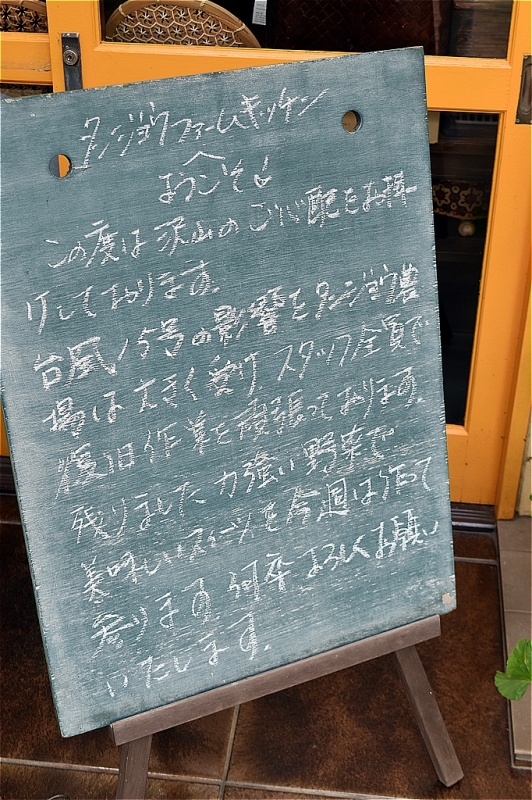 タンジョウファームキッチン
へ
ようこそ!
この度は沢山のご心配をお掛
けしております。
台風15号の影響をタンジョウ農
場は大きく受け スタッフ全員で
復旧作業を頑張っております。
残りました力強い野菜で
美味しいスイーツを今週は作って
参ります 何卒よろしくお願い
いたします。